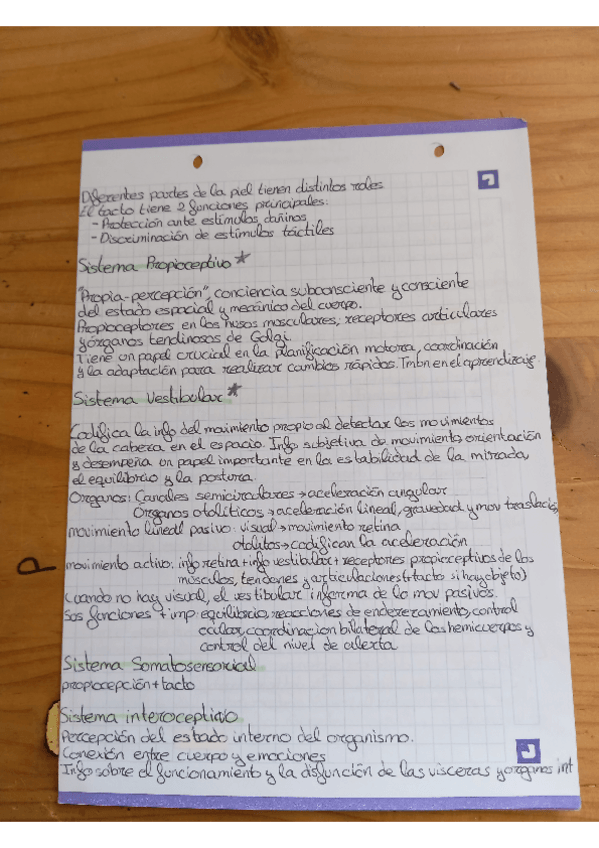 Diferentes partes de la piel tienen distintos roles
El tacto tiene 2 funciones principales:
- Protección ante estímulos dañinos
- Discriminación de estímulos táctiles
Sistema Propioceptivo *
"Propia-percepción", conciencia subconsciente y consciente
del estado espacial y mecánico del cuerpo.
Propioceptores en los husos musculares, receptores articulares
y órganos tendinosos de Golgi.
Tiene un papel crucial en la planificación motora, coordinación
y la adaptación para realizar cambios rápidos. Tmbn en el aprendizaje.
Sistema Vestibular *
Codifica la info del movimiento propio al detectar los movimientos
de la cabeza en el espacio. Info subjetiva de movimiento, orientación
y desempeña un papel importante en la estabilidad de la mirada,
el equilibrio y la postura.
Órganos: Canales semicirculares → aceleración angular
Órganos otolíticos → aceleración lineal, gravedad y mov traslació
movimiento lineal pasivo: visual → movimiento retina
otolitos → codifican la aceleración
movimiento activo: info retina + info vestibular + receptores propioceptivos de los
músculos, tendones y articulaciones (+ tacto si hay objeto)
Cuando no hay visual, el vestibular informa de lo mov pasivos.
Sus funciones + imp: equilibrio, reacciones de enderezamiento, control
ocular, coordinacion bilateral de los hemicuerpos y
control del nivel de alerta
Sistema Somatosensorial
propiocepción + tacto
Sistema interoceptivo
Percepción del estado interno del organismo.
Conexión entre cuerpo y emociones
Info sobre el funcionamiento y la disfunción de las visceras y organos int